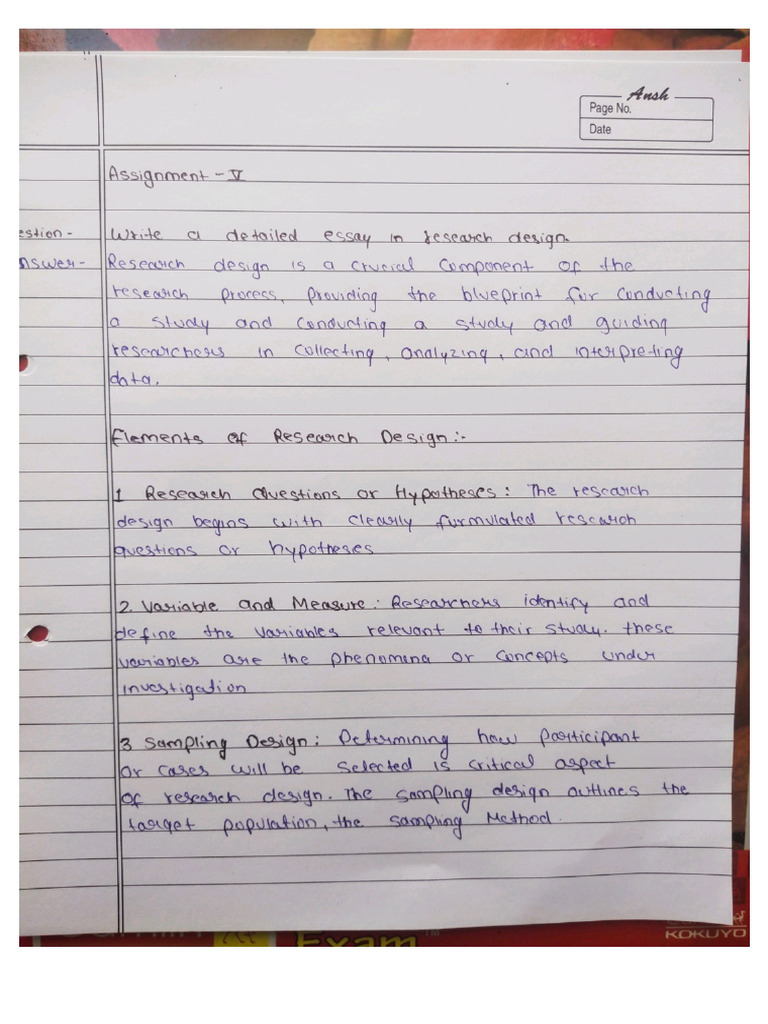 Ansh
Page No.
Date
Assignment - V
estion - Write a detailed essay in research design.
nswer - Research design is a crucial component of the
research process, providing the blueprint for conducting
a study and conducting a study and guiding
researchers in collecting, analyzing, and interpreting
data.
Elements of Research Design :-
1 Research Questions or Hypotheses : The research
design begins with clearly furmulated research
questions or hypotheses
2. Variable and Measure : Researchers identify and
define the variables relevant to their study. These
variables are the phenomena or concepts under
investigation
3 Sampling Design : Determining how participant
or cases will be selected is critical aspect
of research design. The sampling design outlines the
target population, the sampling Method.
Exam
KOKUYO